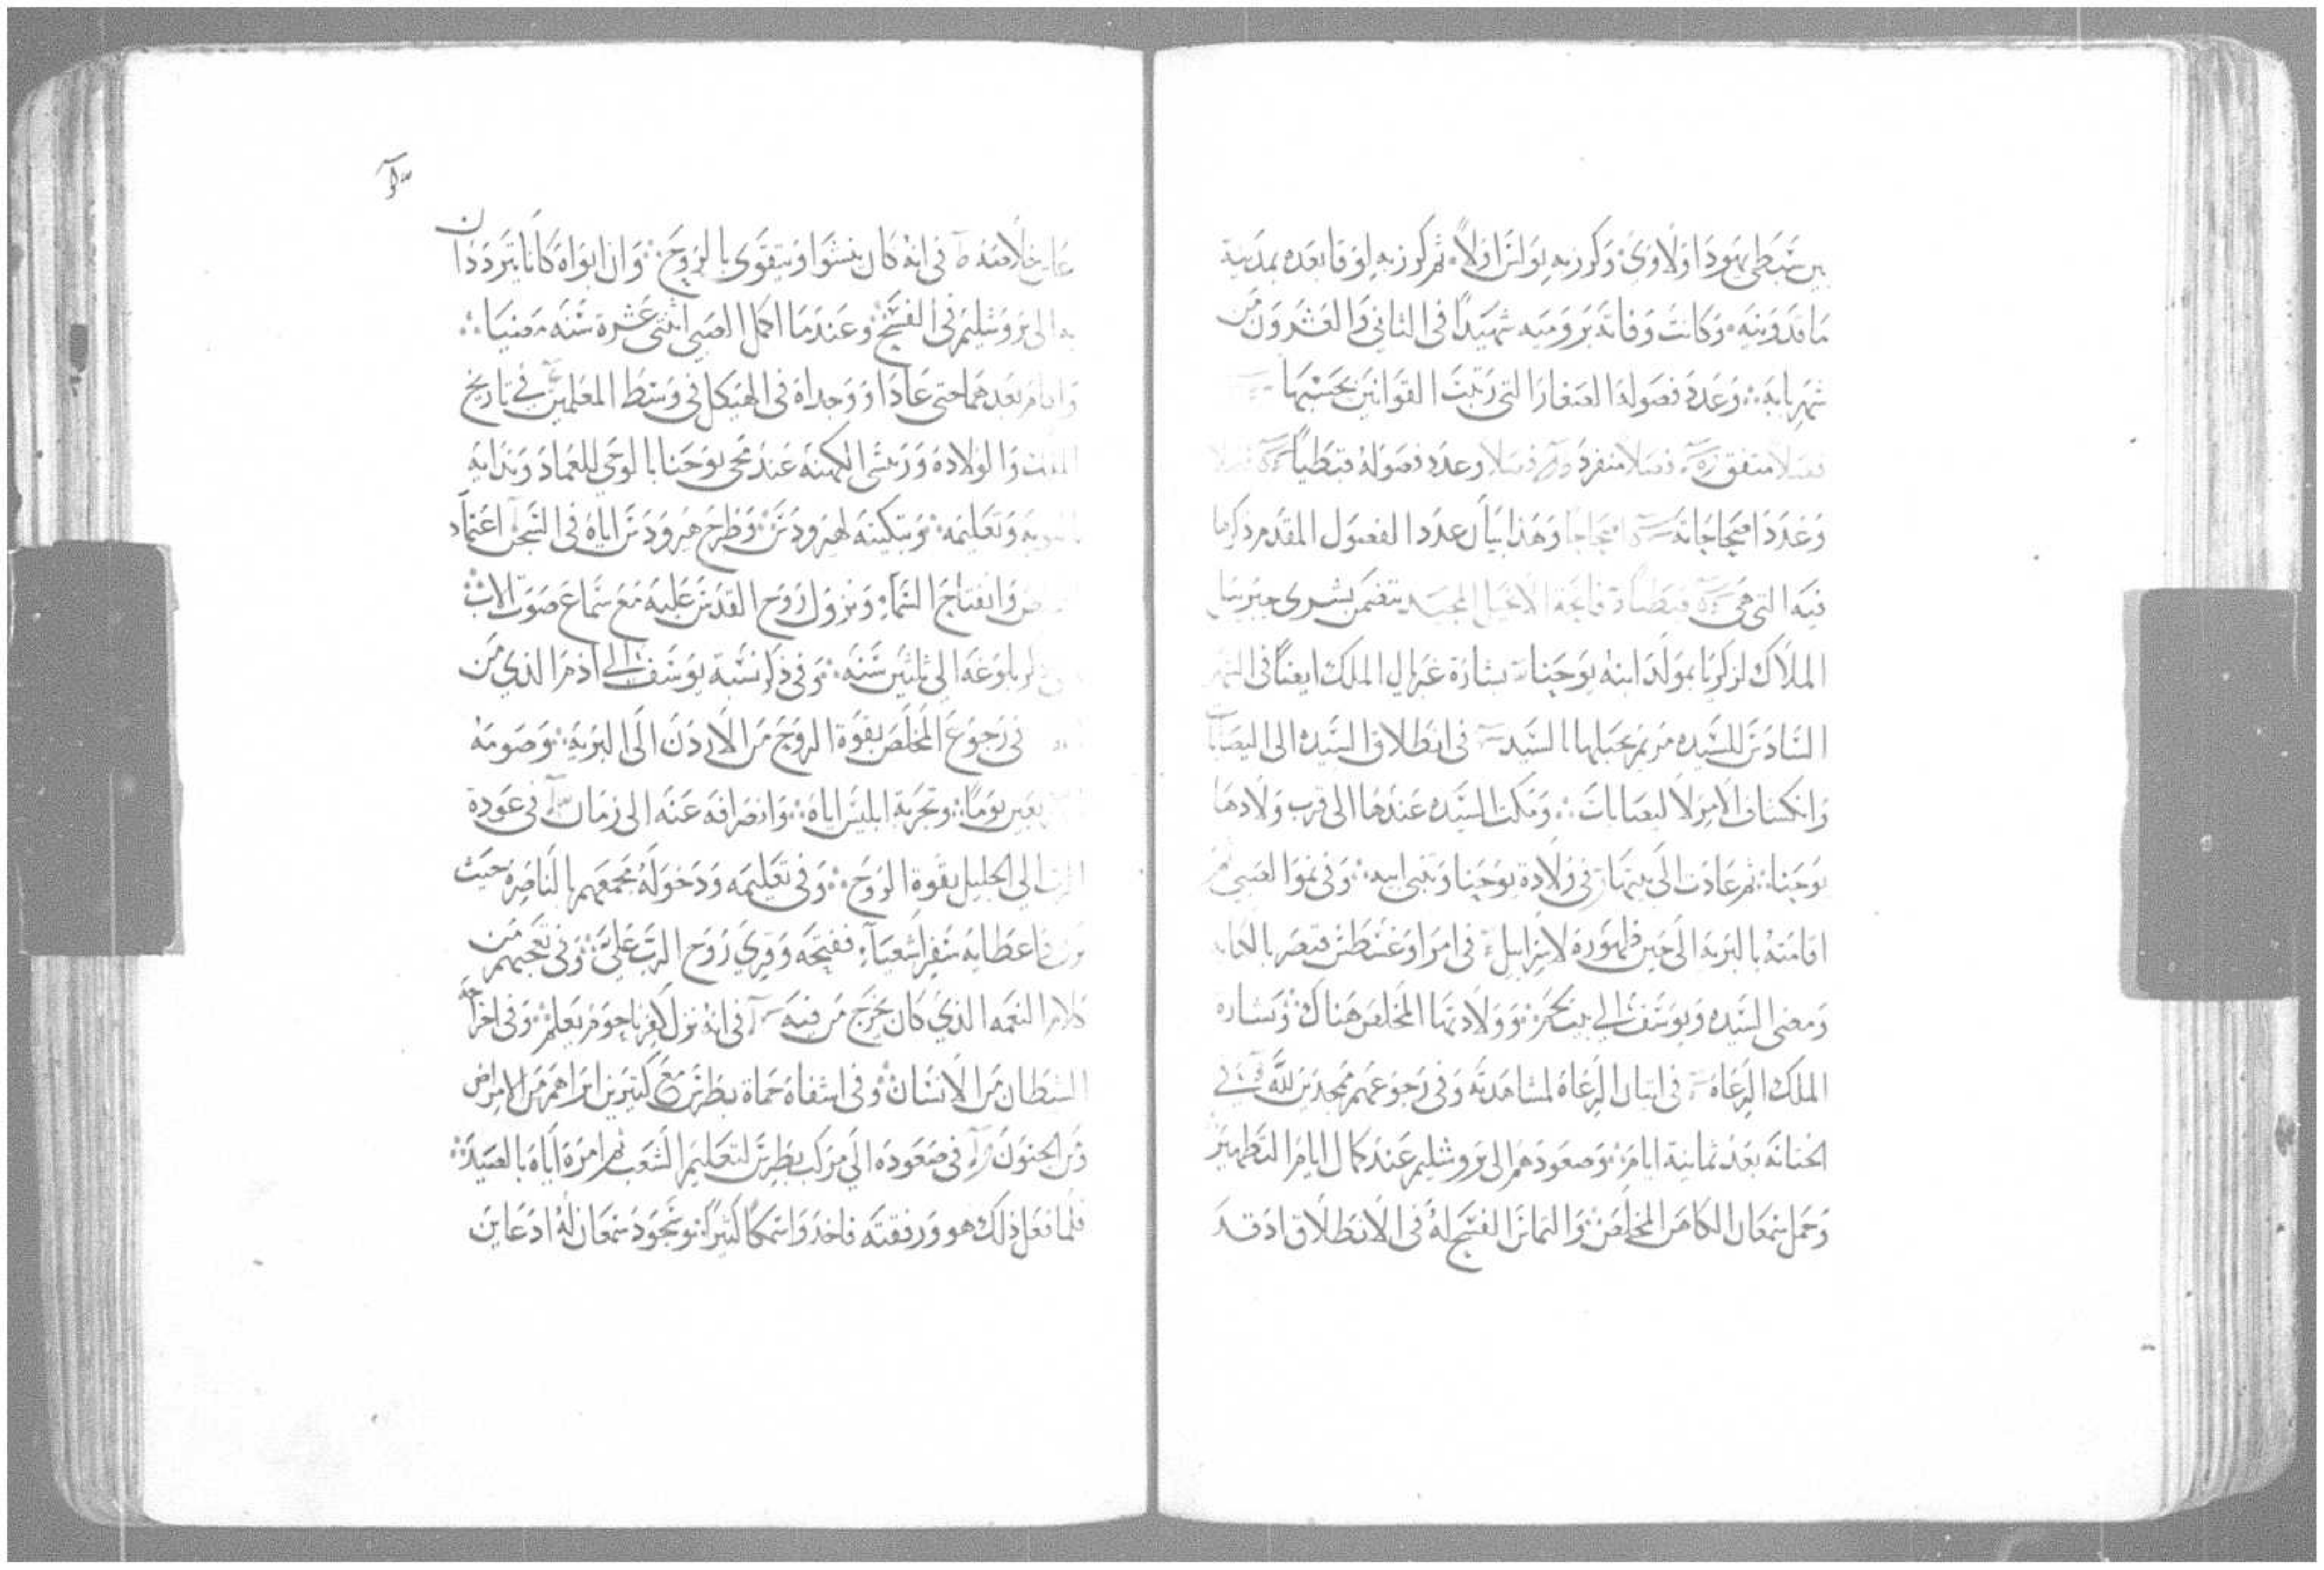 بين سبطي يهودا ولاوي وكورز به بولس اولا ثم كورز به لوقا بعده بمدينة
ماقدونيه وكانت وفاته برومية شهيدا في الثاني والعشرون من
شهر بابه وعدد فصوله الصغار التي رتبت القوانين بحسبها
فصلا متفق فصلا منفرد فصلا وعدد فصوله قبطيا فصلا
وعدد اصحاحاته اصحاحا وهذا بيان عدد الفصول المقدم ذكرها
فيه التي هي قبطيا فاتحة الانجيل المجيد يتضمن بشرى جبريل
الملاك لزكريا بمولد ابنه يوحنا بشارة غبريال الملك ايضا في الشهر
السادس للسيده مريم بحبلها بالسيد في انطلاق السيده الى اليصابات
وانكشاف الامر لاليصابات ومكث السيده عندها الى قرب ولادها
يوحنا ثم عادت الى بيتها في ولادة يوحنا وتنبي ابيه وفي نموا الصبي ثم
اقامته بالبريه الى حين ظهوره لاسراييل في امر اوغسطس قيصر بالكتابه
ومضى السيده ويوسف الي بيت لحم وولادتها المخلص هناك وبشاره
الملك الرعاه في اتيان الرعاة لمشاهدته وفي رجوعهم ممجدين لله في
الختانة بعد ثمانية ايام وصعودهم الى يروشليم عند كمال ايام التطهير
وحمل سمعان الكاهن المخلص والتماس الفسح له في الانطلاق اذ قد
عاين خلاصه في انه كان ينشوا ويتقوى بالروح وان ابواه كانا يترددان
به الى يروشليم في الفسح وعندما اكمل الصبي اثنتى عشرة سنه مضيا
واقام بعدهما حتى عادا ووجداه في الهيكل في وسط المعلمين في تاريخ
والولاده ورييس الكهنه عند مجي يوحنا بالوحي للعماد وندايه
وتعليمه وتبكيته لهيرودس وطرح هيرودس اياه في السجن اعتماد
وانفتاح السماء ونزول روح القدس عليه مع سماع صوت الاب
بلوغه الى ثلثين سنه وفي ذكر نسبة يوسف الى ادم الذي من
في رجوع المخلص بقوة الروح من الاردن الى البريه وصومه
اربعين يوما وتجربة ابليس اياه وانصرافه عنه الى زمان في عودة
الرب الى الجليل بقوة الروح وفي تعليمه ودخوله مجمعهم بالناصرة حيث
فاعطايه سفر اشعياء ففتحه وقري روح الرب علي وفي تعجبهم من
كلام النعمه الذي كان يخرج من فيه في انه نزل كفرناحوم يعلم وفي اخراجه
الشيطان من الانسان وفي اشفاه حماة بطرس مع كثيرين ابراهم من الامراض
ومن الجنون في صعوده الى مركب بطرس لتعليم الشعب ثم امره اياه بالصيد
فلما فعل ذلك هو ورفقته فاخذوا سمكا كثيرا وسجود سمعان له اذ عاين